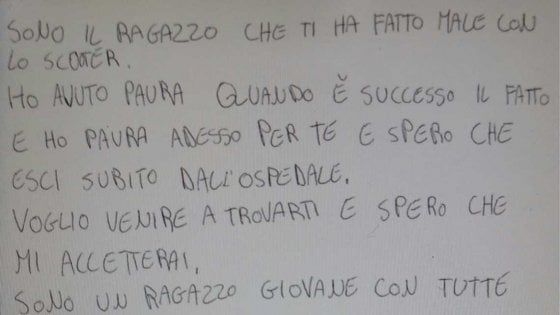 SONO IL RAGAZZO CHE TI HA FATTO MALE CON
LO SCOOTER.
HO AVUTO PAURA QUANDO È SUCCESSO IL FATTO
E HO PAURA ADESSO PER TE E SPERO CHE
ESCI SUBITO DALL'OSPEDALE.
VOGLIO VENIRE A TROVARTI E SPERO CHE
MI ACCETTERAI.
SONO UN RAGAZZO GIOVANE CON TUTTE